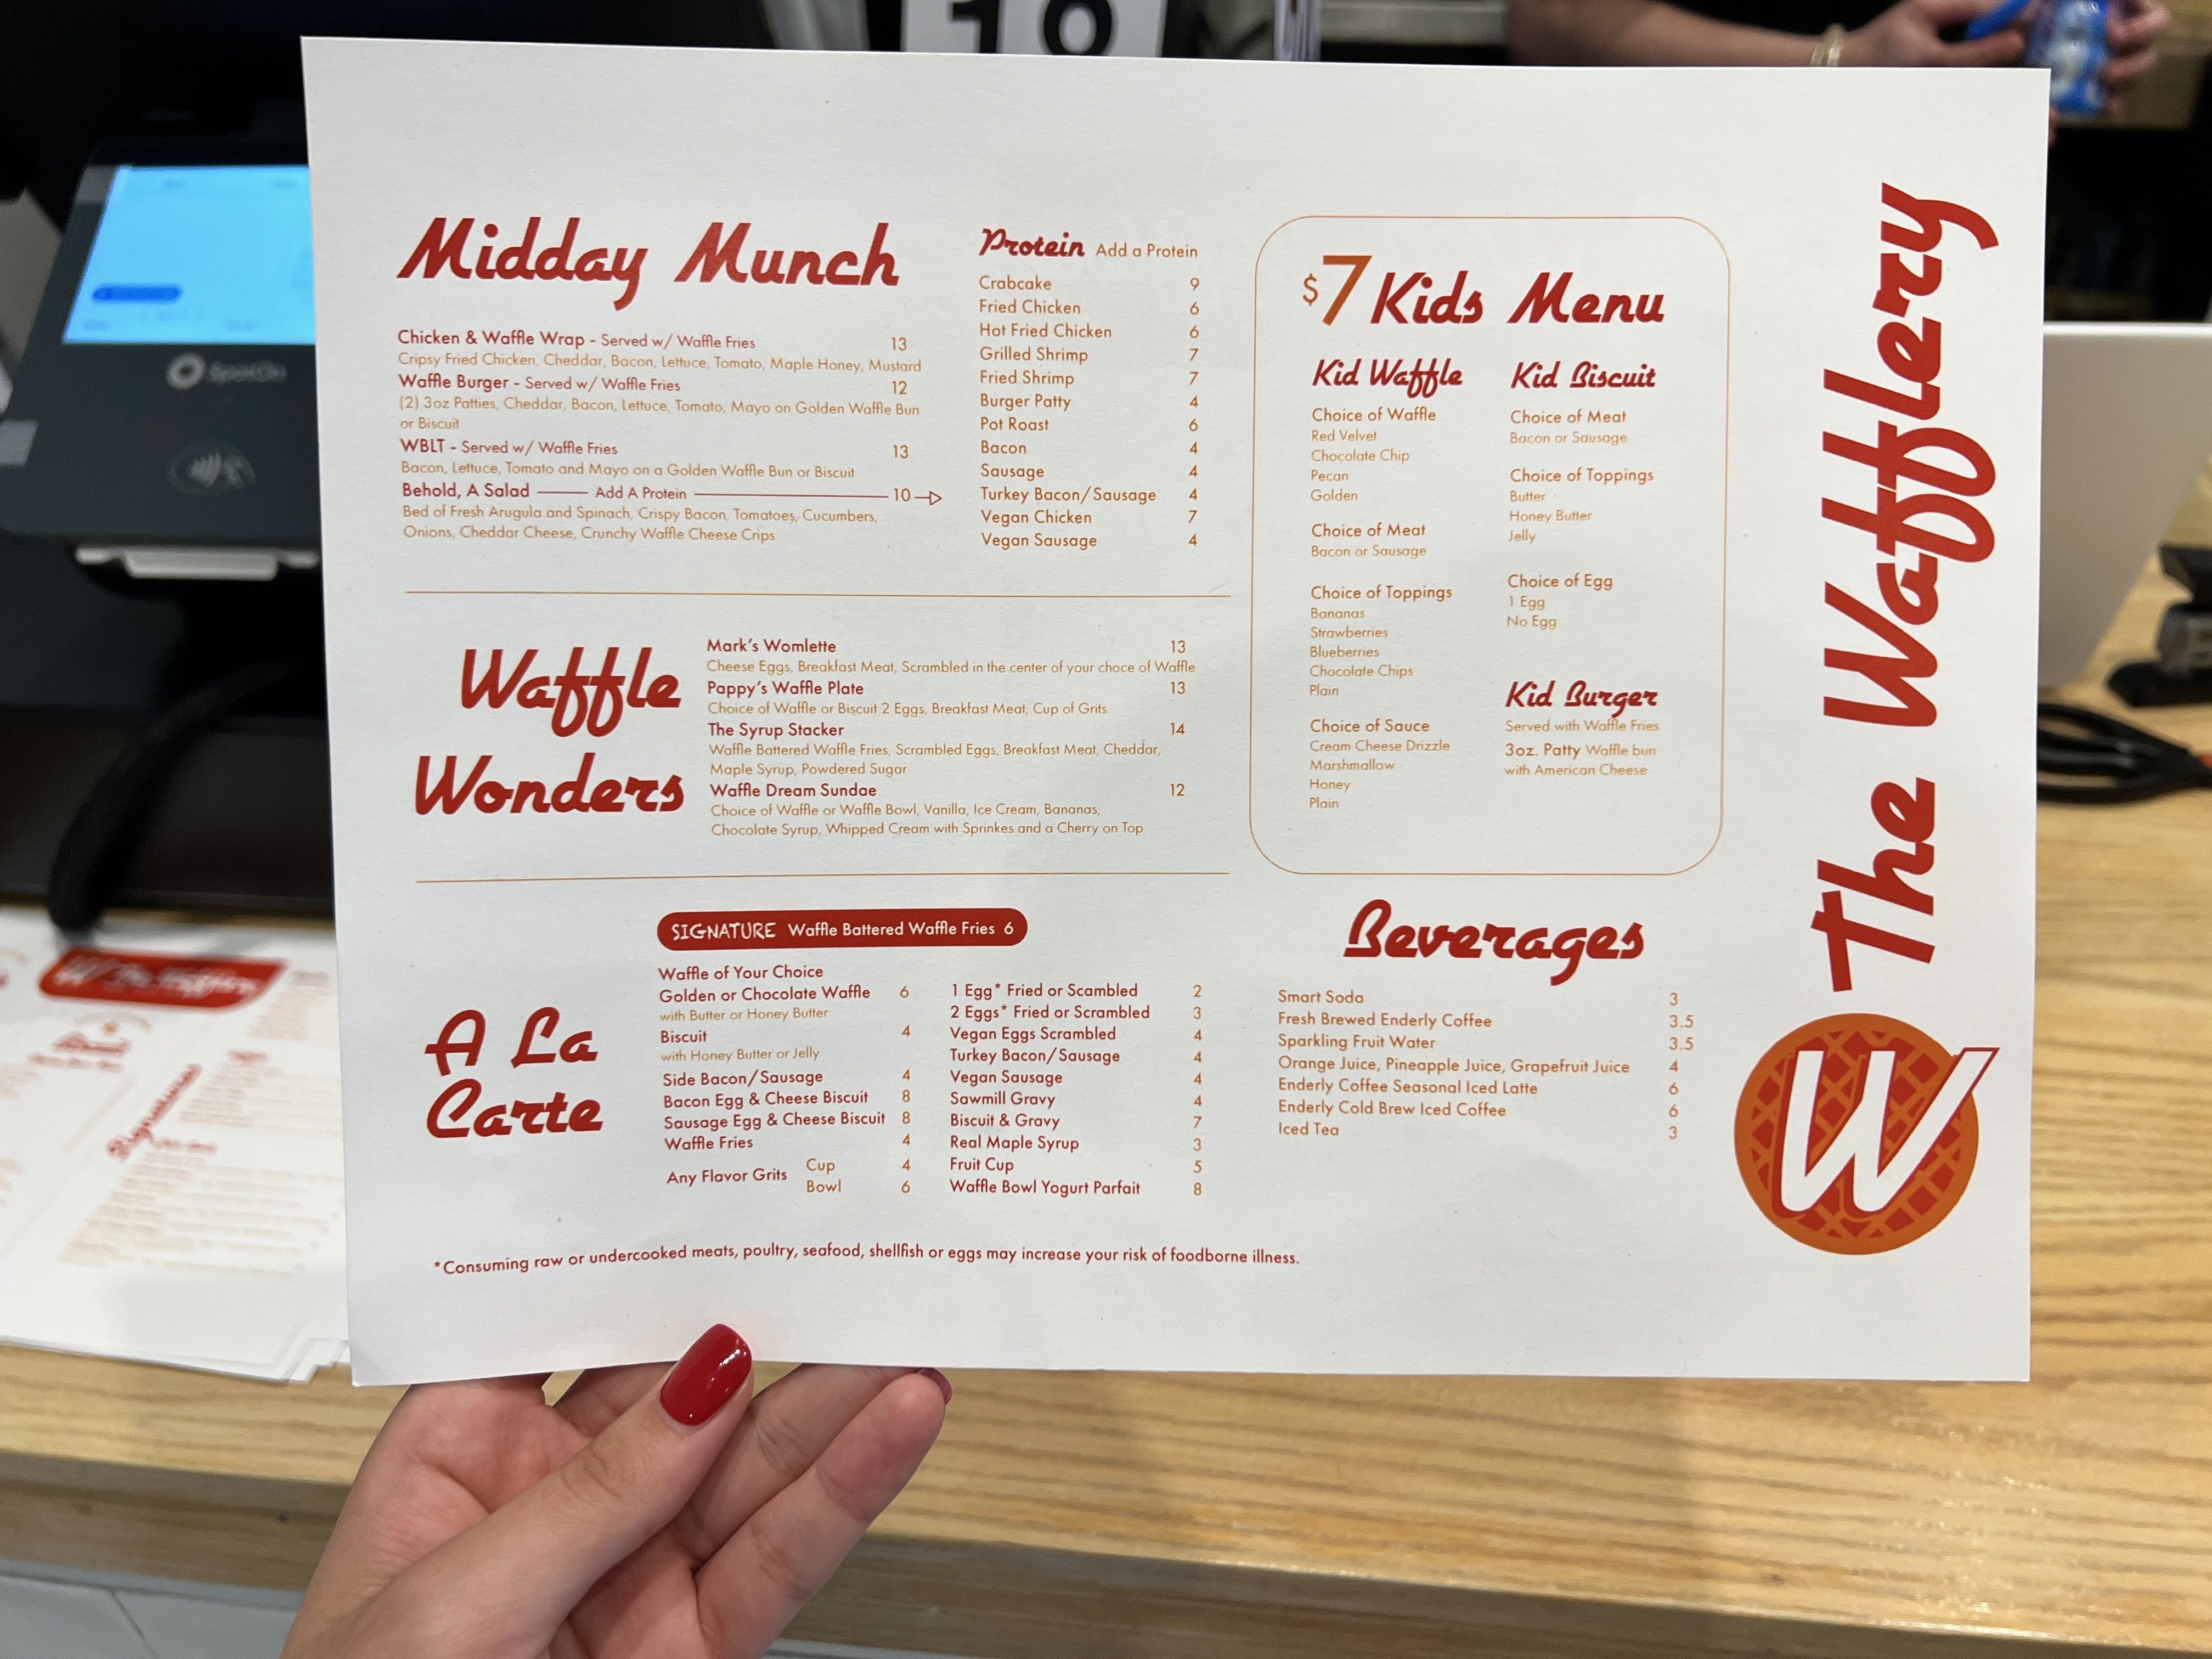 Midday Munch
Chicken & Waffle Wrap - Served w/ Waffle Fries 13
Cripsy Fried Chicken, Cheddar, Bacon, Lettuce, Tomato, Maple Honey, Mustard
Waffle Burger - Served w/ Waffle Fries 12
(2) 3oz Patties, Cheddar, Bacon, Lettuce, Tomato, Mayo on Golden Waffle Bun
or Biscuit
WBLT - Served w/ Waffle Fries 13
Bacon, Lettuce, Tomato and Mayo on a Golden Waffle Bun or Biscuit
Behold, A Salad Add A Protein 10
Bed of Fresh Arugula and Spinach, Crispy Bacon, Tomatoes, Cucumbers,
Onions, Cheddar Cheese, Crunchy Waffle Cheese Crips
Protein Add a Protein
Crabcake 9
Fried Chicken 6
Hot Fried Chicken 6
Grilled Shrimp 7
Fried Shrimp 7
Burger Patty 4
Pot Roast 6
Bacon 4
Sausage 4
Turkey Bacon/Sausage 4
Vegan Chicken 7
Vegan Sausage 4
Waffle
Wonders
Mark's Womlette 13
Cheese Eggs, Breakfast Meat, Scrambled in the center of your choce of Waffle
Pappy's Waffle Plate 13
Choice of Waffle or Biscuit 2 Eggs, Breakfast Meat, Cup of Grits
The Syrup Stacker 14
Waffle Battered Waffle Fries, Scrambled Eggs, Breakfast Meat, Cheddar,
Maple Syrup, Powdered Sugar
Waffle Dream Sundae 12
Choice of Waffle or Waffle Bowl, Vanilla, Ice Cream, Bananas,
Chocolate Syrup, Whipped Cream with Sprinkes and a Cherry on Top
A La
Carte
SIGNATURE Waffle Battered Waffle Fries 6
Waffle of Your Choice
Golden or Chocolate Waffle 6
with Butter or Honey Butter
Biscuit 4
with Honey Butter or Jelly
Side Bacon/Sausage 4
Bacon Egg & Cheese Biscuit 8
Sausage Egg & Cheese Biscuit 8
Waffle Fries 4
Any Flavor Grits Cup 4
Bowl 6
1 Egg* Fried or Scambled 2
2 Eggs* Fried or Scrambled 3
Vegan Eggs Scrambled 4
Turkey Bacon/Sausage 4
Vegan Sausage 4
Sawmill Gravy 4
Biscuit & Gravy 7
Real Maple Syrup 3
Fruit Cup 5
Waffle Bowl Yogurt Parfait 8
*Consuming raw or undercooked meats, poultry, seafood, shellfish or eggs may increase your risk of foodborne illness.
$7 Kids Menu
Kid Waffle
Choice of Waffle
Red Velvet
Chocolate Chip
Pecan
Golden
Choice of Meat
Bacon or Sausage
Choice of Toppings
Bananas
Strawberries
Blueberries
Chocolate Chips
Plain
Choice of Sauce
Cream Cheese Drizzle
Marshmallow
Honey
Plain
Kid Biscuit
Choice of Meat
Bacon or Sausage
Choice of Toppings
Butter
Honey Butter
Jelly
Choice of Egg
1 Egg
No Egg
Kid Burger
Served with Waffle Fries
3oz. Patty Waffle bun
with American Cheese
Beverages
Smart Soda 3
Fresh Brewed Enderly Coffee 3.5
Sparkling Fruit Water 3.5
Orange Juice, Pineapple Juice, Grapefruit Juice 4
Enderly Coffee Seasonal Iced Latte 6
Enderly Cold Brew Iced Coffee 6
Iced Tea 3
The Wafflery
W
SpotOn